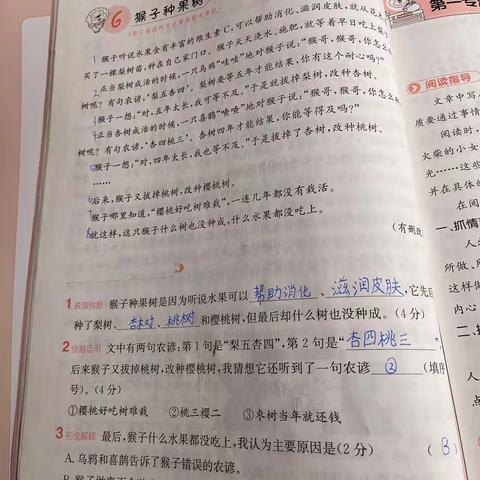 6 猴子种果树
猴子听说水果含有丰富的维生素C,可以帮助消化、滋润皮肤,就从花
买了一棵梨树苗,种在自己家门口。猴子天天浇水、施肥,就等着早日吃上
正当梨树成活的时候,一只乌鸦“哇哇”地对猴子说:“猴哥,猴哥,你怎么
树呢?有句农谚,‘梨五杏四’。梨树要等五年才能结果,你有这个耐心吗?”
猴子一想:“对,五年太长,我可等不及。”于是就拔掉梨树,改种杏树。
正当杏树成活的时候,一只喜鹊“喳喳”地对猴子说:“猴哥,猴哥,你怎么
树呢?有句农谚,‘杏四桃三’。杏树四年才能结果,你能等得及吗?”
猴子一想:“对,四年太长,我也等不及。”于是就拔掉了杏树,改种桃树。
……
后来,猴子又拔掉桃树,改种樱桃树。
猴子哪里知道,“樱桃好吃树难栽”,一连几年都没有栽活。
就这样,这只猴子什么树也没种成,什么水果都没吃上。
(有删改
1 获取信息 猴子种果树是因为听说水果可以 帮助消化 、滋润皮肤,它先后
种了梨树、杏树、桃树和樱桃树,但最后却什么树也没种成。(4分)
2 文中有两句农谚:第1句是“梨五杏四”,第2句是“杏四桃三”,
后来猴子又拔掉桃树,改种樱桃树,我猜想它还听到了一句农谚 ② (填序
号)。(4分)
①樱桃好吃树难栽 ②桃三樱二 ③枣树当年就还钱
3 形成解释 最后,猴子什么水果都没吃上,我认为主要原因是(2分) ( B )
A. 乌鸦和喜鹊告诉了猴子错误的农谚。
第一专
阅读指导
文章中写
质要通过事情
阅读时,
火柴的小女
这些
并在具体的
在阅
一、抓情
人
所做、所
这样做
内心
二、
人
点